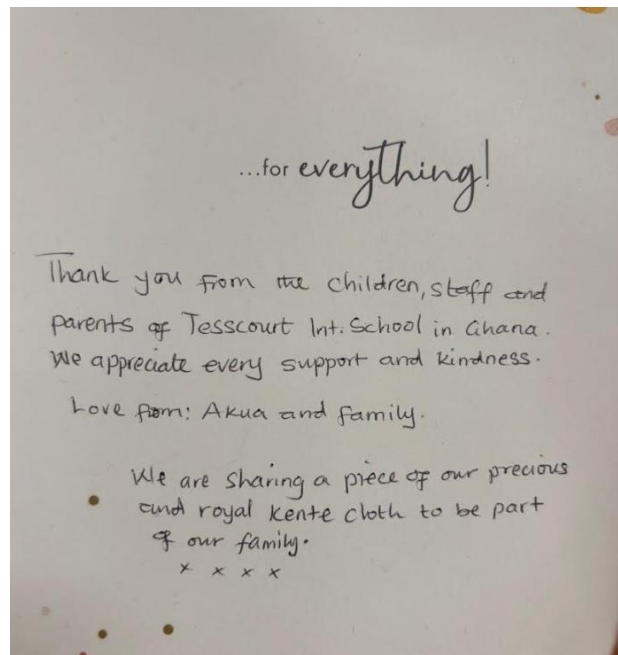 ...for everything!
Thank you from the children, staff and
parents of Tesscourt Int. School in Ghana.
We appreciate every support and kindness.
Love from: Akua and family.
We are sharing a piece of our precious
and royal Kente cloth to be part
of our family.
x x x x